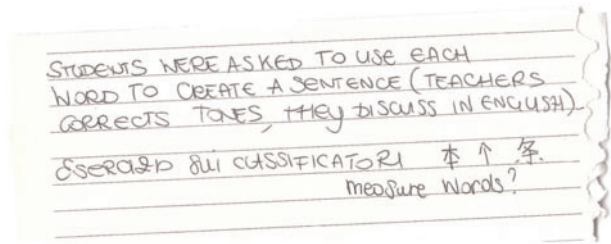 STUDENTS WERE ASKED TO USE EACH
WORD TO CREATE A SENTENCE (TEACHERS
CORRECTS TONES, THEY DISCUSS IN ENGLISH).
ESERCIZIO SUI CLASSIFICATORI 本 个 条
measure words?